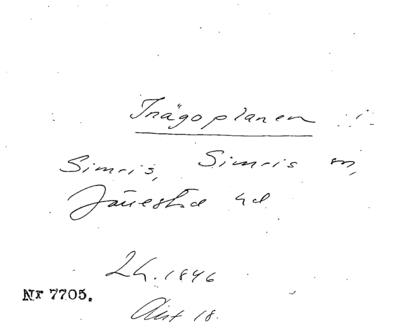 Trägoplanen i
Simris, Simris sn,
Järrestad hd
Lh. 1846
Nr 7705.
Akt 18.